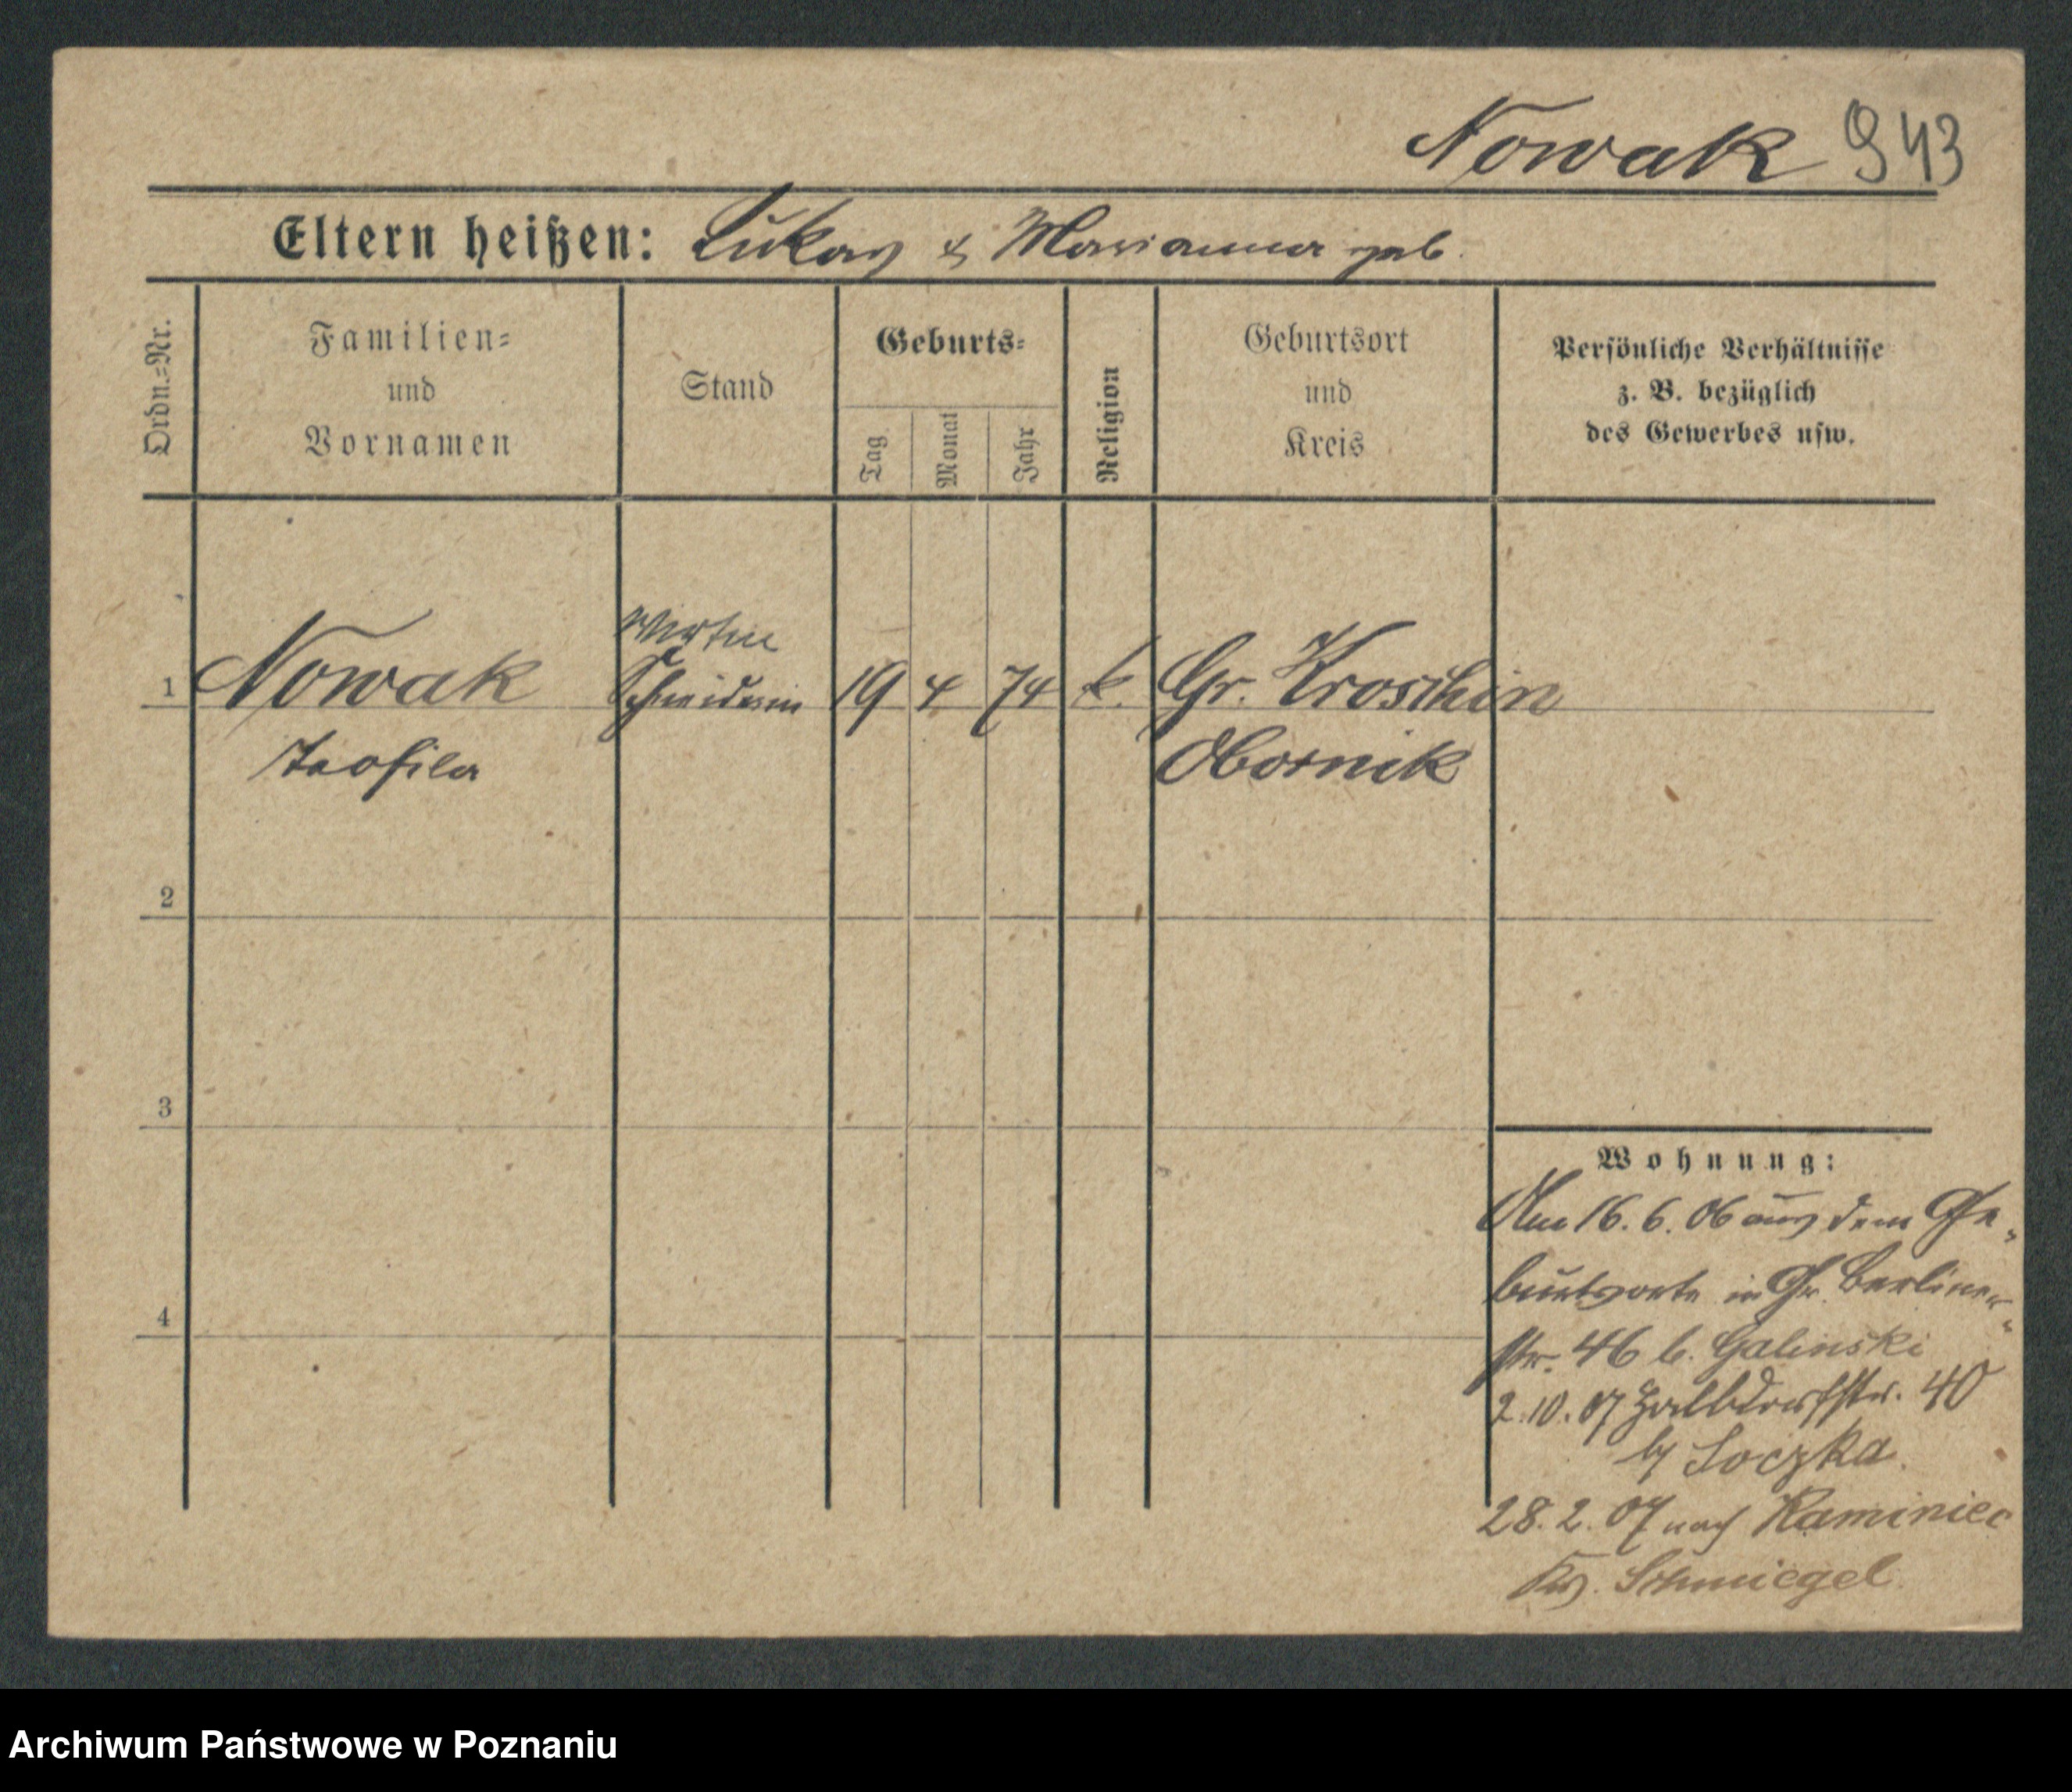 Nowak 943
Eltern heißen: Lukas & Marianna geb.
Ordn.-Nr.
Familien-
und
Vornamen
Stand
Geburts-
Tag
Monat
Jahr
Religion
Geburtsort
und
Kreis
Persönliche Verhältnisse
z. B. bezüglich
des Gewerbes usw.
Wirtin
1 Nowak Schneiderin 19 4 74 k. Gr. Kroschin
Teofila Obornik
2
3
4
Wohnung:
Am 16. 6. 06 aus dem Ge-
burtsorte in Gr. Berliner-
str. 46 b. Galinski
2.10.07 Halbdorfstr. 40
b/ Loczka.
28. 2. 07 nach Kaminiec
Krs. Schmiegel
Archiwum Państwowe w Poznaniu